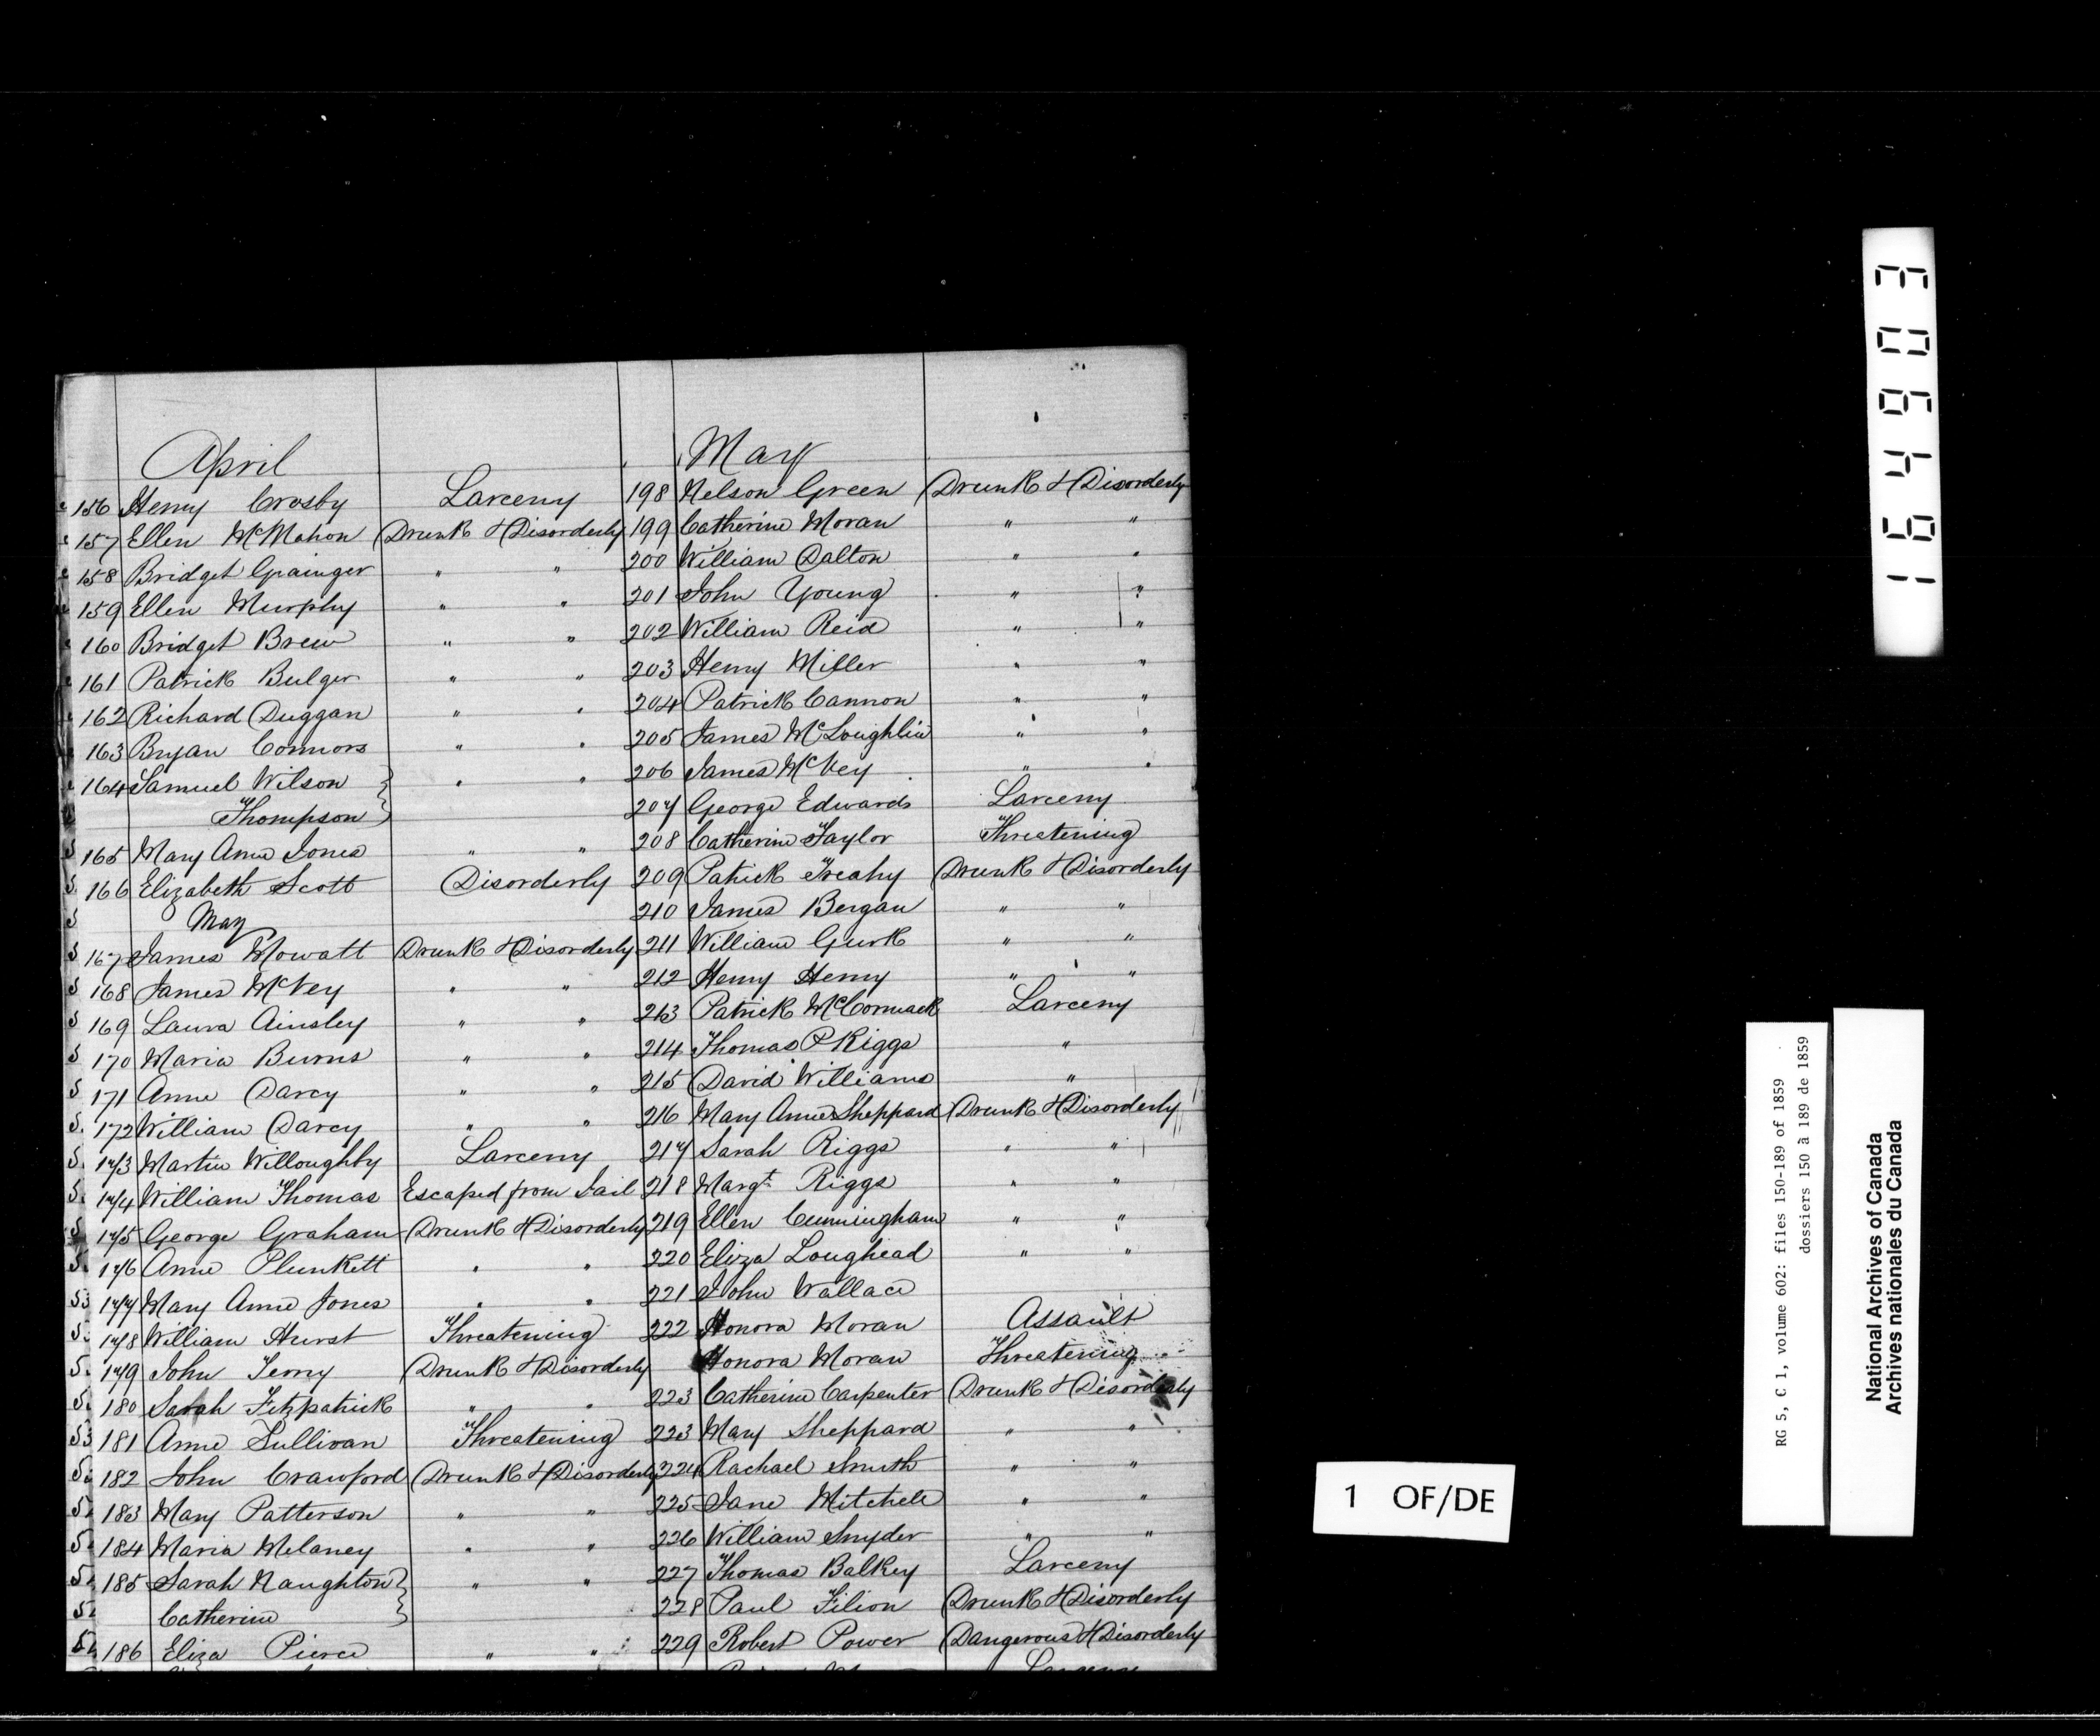 April
156 Henry Crosby Larceny
157 Ellen McMahon Drunk & Disorderly
158 Bridget Grainger " "
159 Ellen Murphy " "
160 Bridget Brew " "
161 Patrick Bulger " "
162 Richard Duggan " "
163 Bryan Connors " "
164 Samuel Wilson } " "
Thompson }
165 Mary Anne Jones " "
166 Elizabeth Scott Disorderly
May
167 James Mowatt Drunk & Disorderly
168 James McVey " "
169 Laura Ainsley " "
170 Maria Burns " "
171 Anne Darcy " "
172 William Darcy " "
173 Martin Willoughby Larceny
174 William Thomas Escaped from Jail
175 George Graham Drunk & Disorderly
176 Anne Plunkett " "
177 Mary Anne Jones " "
178 William Hurst Threatening
179 John Terry Drunk & Disorderly
180 Sarah Fitzpatrick " "
181 Anne Sullivan Threatening
182 John Crawford Drunk & Disorderly
183 Mary Patterson " "
184 Maria Melaney " "
185 Sarah Naughton } " "
Catherine }
186 Eliza Pierce " "
May
198 Nelson Green Drunk & Disorderly
199 Catherine Moran " "
200 William Dalton " "
201 John Young " "
202 William Reid " "
203 Henry Miller " "
204 Patrick Cannon " "
205 James McLoughlin " "
206 James McVey " "
207 George Edwards Larceny
208 Catherine Taylor Threatening
209 Patrick Treahy Drunk & Disorderly
210 James Bergan " "
211 William Gurk " "
212 Henry Henry " "
213 Patrick McCormack Larceny
214 Thomas P Riggs "
215 David Williams "
216 Mary Anne Sheppard Drunk & Disorderly
217 Sarah Riggs " "
218 Margt Riggs " "
219 Ellen Cunningham " "
220 Eliza Loughead " "
221 John Wallace
222 Honora Moran Assault
Honora Moran Threatening
223 Catherine Carpenter Drunk & Disorderly
223 Mary Sheppard " "
224 Rachael Smith " "
225 Jane Mitchell " "
226 William Snyder " "
227 Thomas Balkey Larceny
228 Paul Filion Drunk & Disorderly
229 Robert Power Dangerous & Disorderly
Larceny
1 OF/DE
164903
RG 5, C 1, volume 602: files 150-189 of 1859
dossiers 150 à 189 de 1859
National Archives of Canada
Archives nationales du Canada